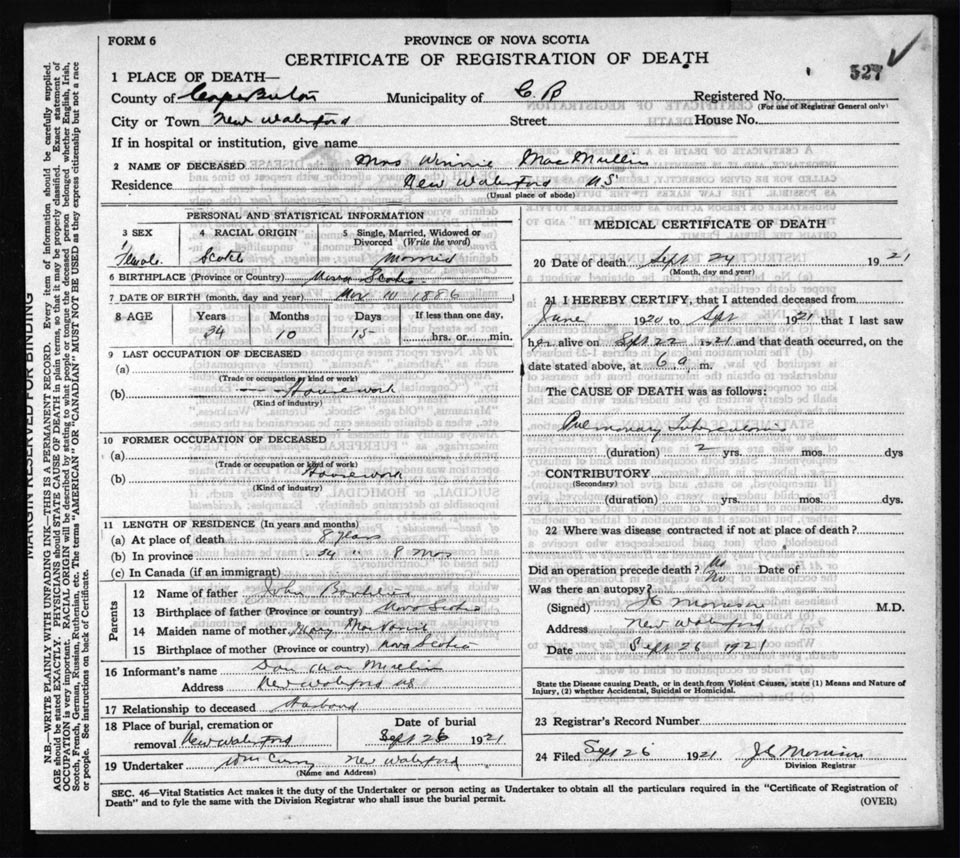 FORM 6
PROVINCE OF NOVA SCOTIA
CERTIFICATE OF REGISTRATION OF DEATH
527
1 PLACE OF DEATH—
County of Cape Breton Municipality of C. B Registered No.
(For use of Registrar General only)
City or Town New Waterford Street House No.
If in hospital or institution, give name
2 NAME OF DECEASED Mrs Winnie MacMullin
Residence New Waterford NS
(Usual place of abode)
PERSONAL AND STATISTICAL INFORMATION
3 SEX 4 RACIAL ORIGIN 5 Single, Married, Widowed or Divorced (Write the word)
Female Scotch Married
6 BIRTHPLACE (Province or Country) Nova Scotia
7 DATE OF BIRTH (month, day and year) Nov 10 1886
8 AGE Years Months Days If less than one day,
34 10 15 hrs. or min.
9 LAST OCCUPATION OF DECEASED
(a)
(Trade or occupation or kind or work)
(b) Housework
(Kind of industry)
10 FORMER OCCUPATION OF DECEASED
(Trade or occupation or kind of work)
(b) Housework
(Kind of industry)
11 LENGTH OF RESIDENCE (In years and months)
(a) At place of death 8 years
(b) In province 34 " 8 Mos
(c) In Canada (if an immigrant)
Parents
12 Name of father John
13 Birthplace of father (Province or country) Nova Scotia
14 Maiden name of mother Mary
15 Birthplace of mother (Province or country) Nova Scotia
16 Informant's name Dan MacMullin
Address New Waterford NS
17 Relationship to deceased Husband
18 Place of burial, cremation or removal New Waterford
Date of burial Sept 26 1921
19 Undertaker Wm Curry New Waterford
(Name and Address)
MEDICAL CERTIFICATE OF DEATH
20 Date of death Sept 24 1921
(Month, day and year)
21 I HEREBY CERTIFY, that I attended deceased from
June 1920 to Spt 1921 that I last saw
her alive on Spt 22 1921 and that death occurred, on the
date stated above, at 6 a m.
The CAUSE OF DEATH was as follows:
Pulmonary Tuberculosis
(duration) 2 yrs. mos. dys
CONTRIBUTORY
(Secondary)
(duration) yrs. mos. dys.
22 Where was disease contracted if not at place of death?
Did an operation precede death? No Date of
Was there an autopsy? No
(Signed) J C Morrison M.D.
Address New Waterford
Date Sept 26 1921
State the Disease causing Death, or in death from Violent Causes, state (1) Means and Nature of
Injury, (2) whether Accidental, Suicidal or Homicidal.
23 Registrar's Record Number
24 Filed Sept 26 1921 J C Morrison
Division Registrar
SEC. 46—Vital Statistics Act makes it the duty of the Undertaker or person acting as Undertaker to obtain all the particulars required in the "Certificate of Registration of
Death" and to fyle the same with the Division Registrar who shall issue the burial permit.
(OVER)
MARGIN RESERVED FOR BINDING
N.B.—WRITE PLAINLY WITH UNFADING INK—THIS IS A PERMANENT RECORD. Every item of information should be carefully supplied.
AGE should be stated EXACTLY. PHYSICIANS should STATE CAUSE OF DEATH in plain terms, so that it may be properly classified. Exact statement of
OCCUPATION is very important. RACIAL ORIGIN will be described by stating to what people or tongue the deceased person belonged whether English, Irish,
Scotch, French, German, Russian, Ruthenian, etc. The terms "AMERICAN" or "CANADIAN" MUST NOT BE USED as they express citizenship but not a race
or people. See instructions on back of Certificate.